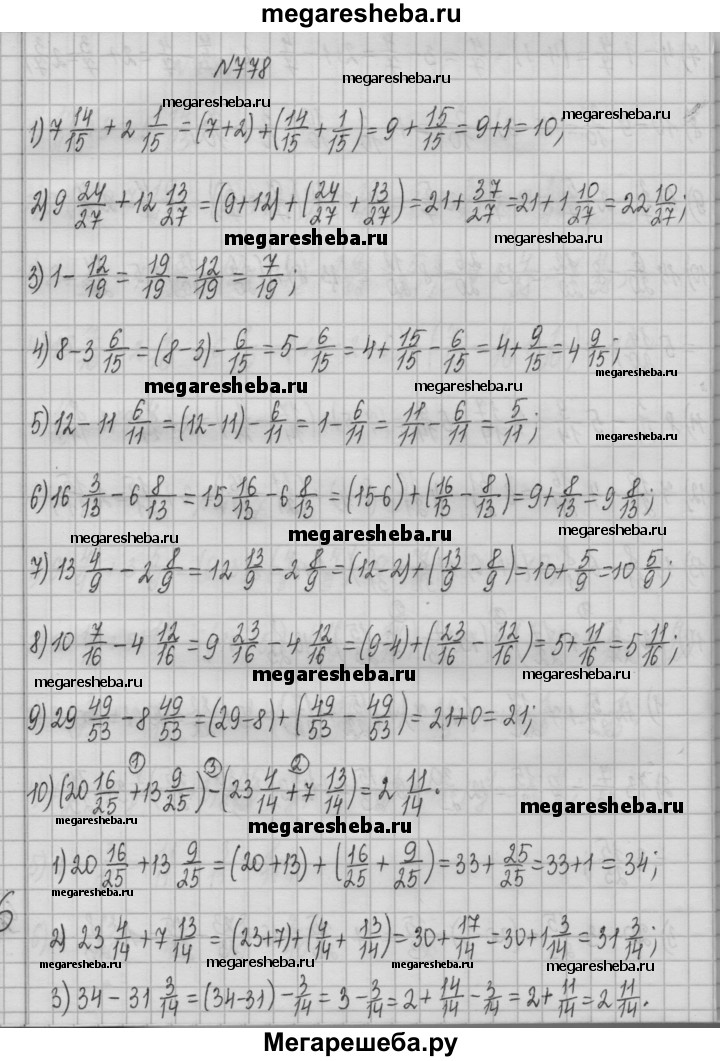 megaresheba.ru
N778
megaresheba.ru
megaresheba.ru
megaresheba.ru
1) 7 14/15 + 2 1/15 = (7+2) + (14/15 + 1/15) = 9 + 15/15 = 9+1 = 10;
2) 9 24/27 + 12 13/27 = (9+12) + (24/27 + 13/27) = 21 + 37/27 = 21 + 1 10/27 = 22 10/27;
megaresheba.ru
megaresheba.ru
3) 1 - 12/19 = 19/19 - 12/19 = 7/19;
4) 8 - 3 6/15 = (8-3) - 6/15 = 5 - 6/15 = 4 + 15/15 - 6/15 = 4 + 9/15 = 4 9/15;
megaresheba.ru
megaresheba.ru
megaresheba.ru
5) 12 - 11 6/11 = (12-11) - 6/11 = 1 - 6/11 = 11/11 - 6/11 = 5/11;
megaresheba.ru
6) 16 3/13 - 6 8/13 = 15 16/13 - 6 8/13 = (15-6) + (16/13 - 8/13) = 9 + 8/13 = 9 8/13;
megaresheba.ru
megaresheba.ru
megaresheba.ru
7) 13 4/9 - 2 8/9 = 12 13/9 - 2 8/9 = (12-2) + (13/9 - 8/9) = 10 + 5/9 = 10 5/9;
8) 10 7/16 - 4 12/16 = 9 23/16 - 4 12/16 = (9-4) + (23/16 - 12/16) = 5 + 11/16 = 5 11/16;
megaresheba.ru
megaresheba.ru
megaresheba.ru
9) 29 49/53 - 8 49/53 = (29-8) + (49/53 - 49/53) = 21 + 0 = 21;
1 3 2
10) (20 16/25 + 13 9/25) - (23 4/14 + 7 13/14) = 2 11/14.
megaresheba.ru
megaresheba.ru
megaresheba.ru
1) 20 16/25 + 13 9/25 = (20+13) + (16/25 + 9/25) = 33 + 25/25 = 33+1 = 34;
megaresheba.ru
megaresheba.ru
2) 23 4/14 + 7 13/14 = (23+7) + (4/14 + 13/14) = 30 + 17/14 = 30 + 1 3/14 = 31 3/14;
megaresheba.ru
megaresheba.ru
megaresheba.ru
megaresheba.ru
3) 34 - 31 3/14 = (34-31) - 3/14 = 3 - 3/14 = 2 + 14/14 - 3/14 = 2 + 11/14 = 2 11/14.
Мегарешеба.ру